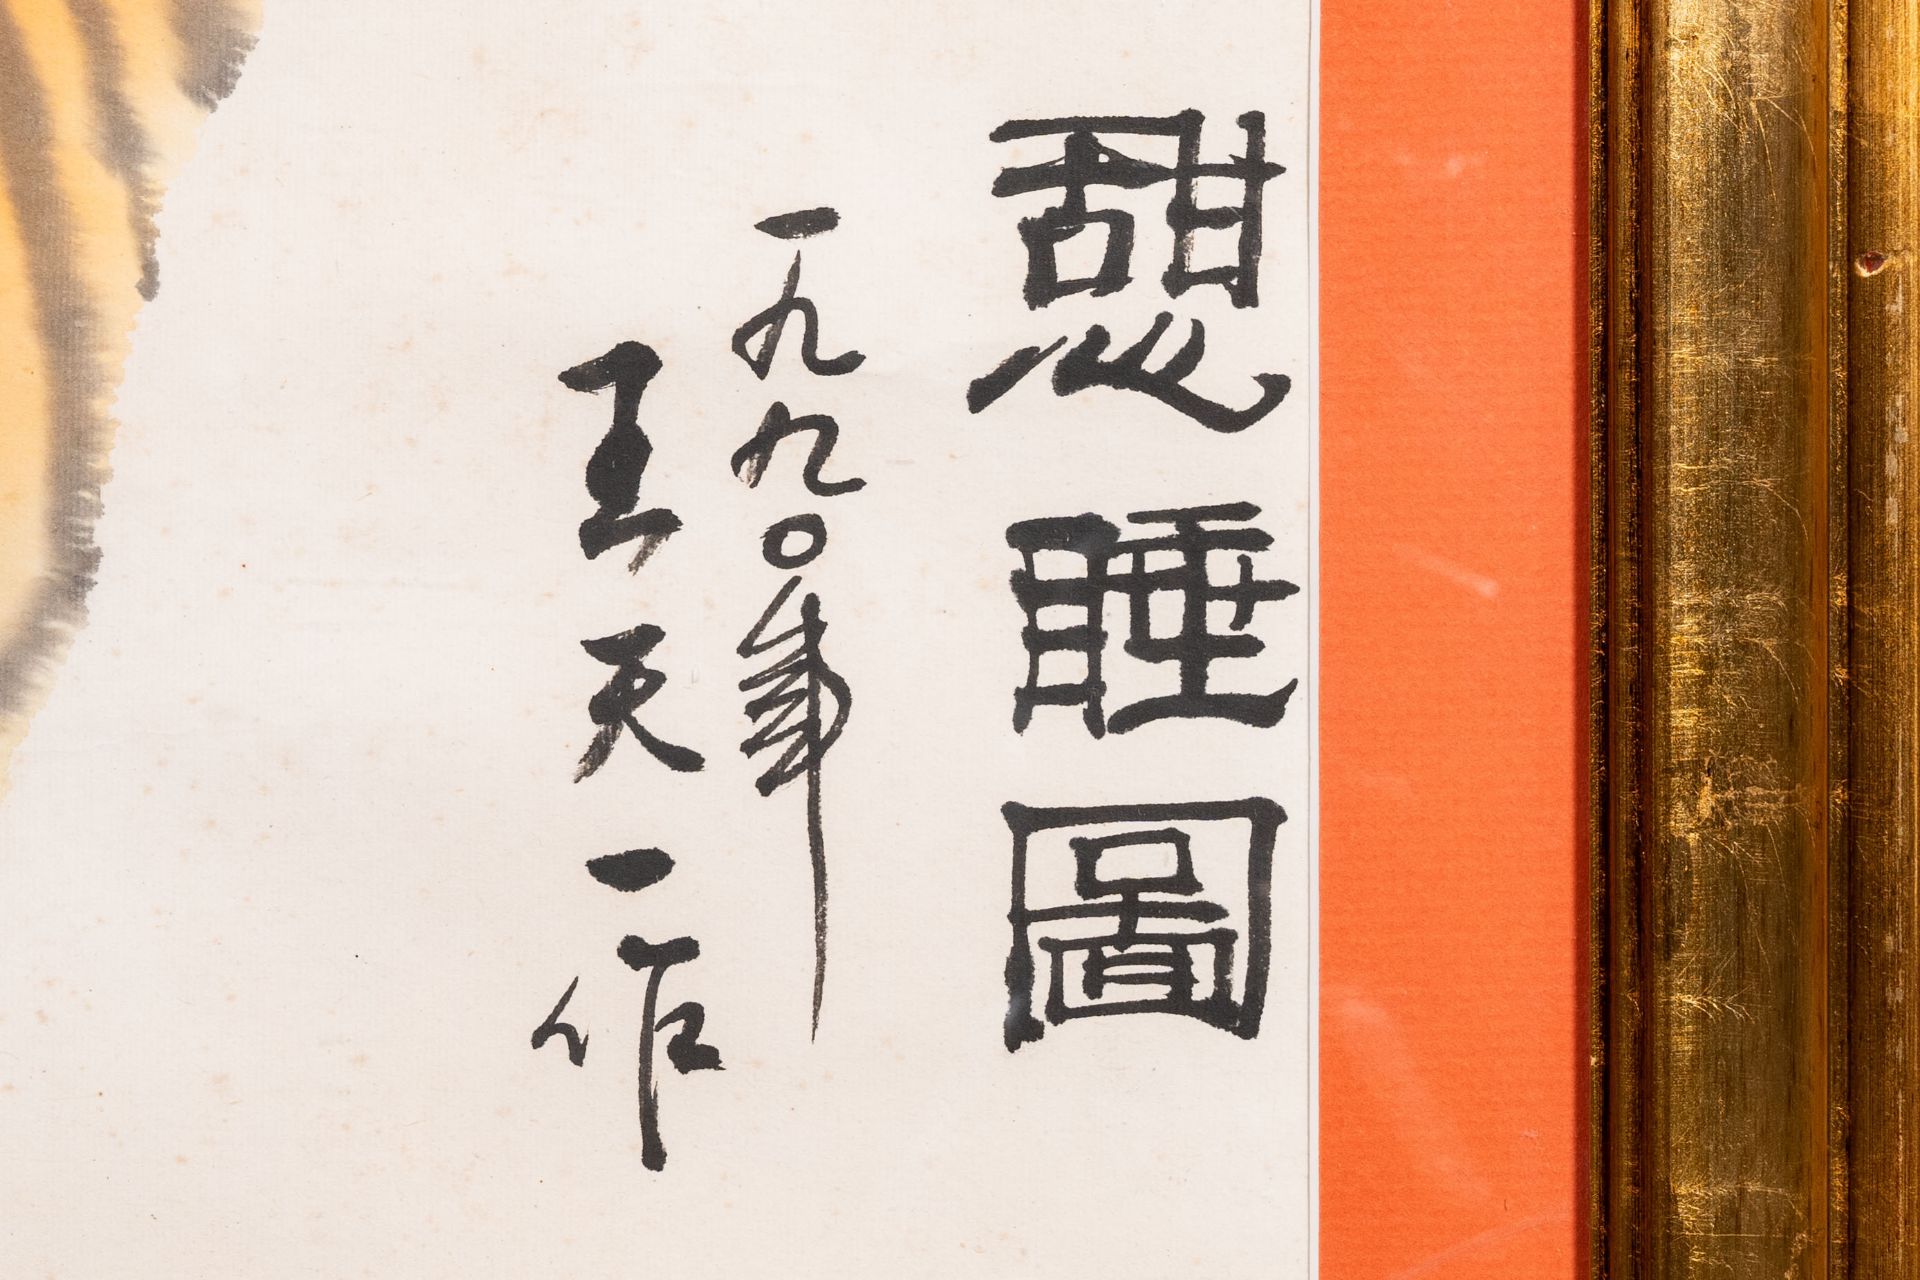 憩睡圖
一九九〇年
王天一作